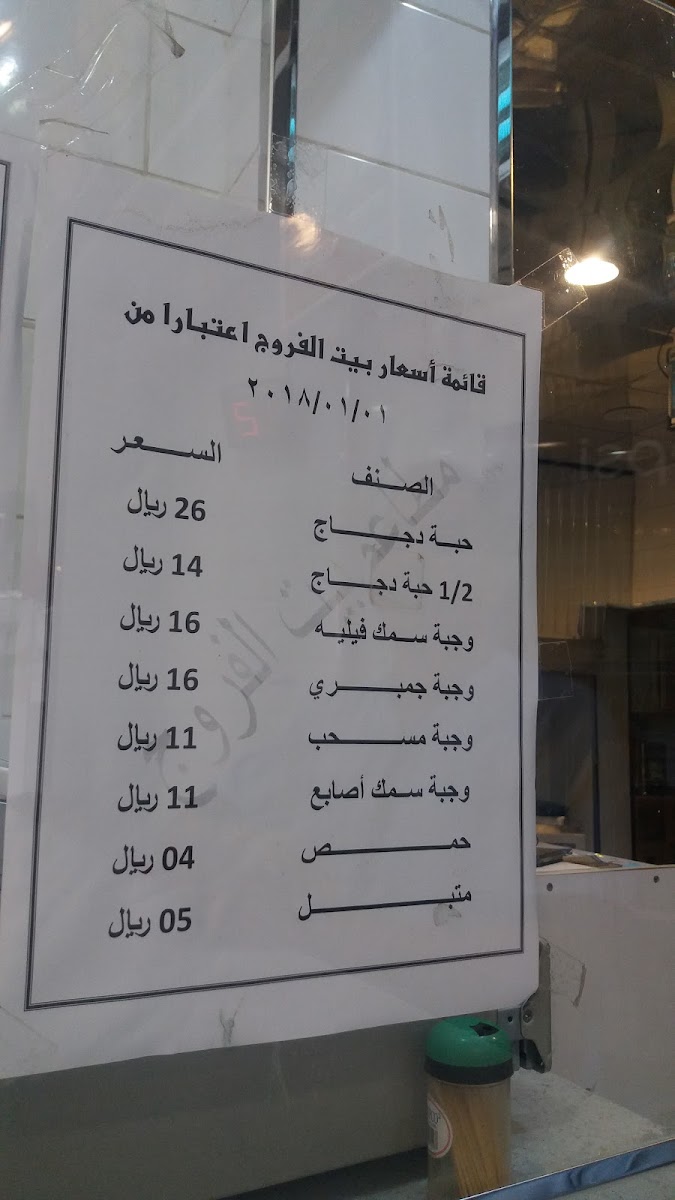 قائمة أسعار بيت الفروج اعتبارا من
٢٠١٨/٠١/٠١
الصنف السعر
حبة دجاج 26 ريال
1/2 حبة دجاج 14 ريال
وجبة سمك فيليه 16 ريال
وجبة جمبري 16 ريال
وجبة مسحب 11 ريال
وجبة سمك أصابع 11 ريال
حمص 04 ريال
متبل 05 ريال
مطاعم بيت الفروج